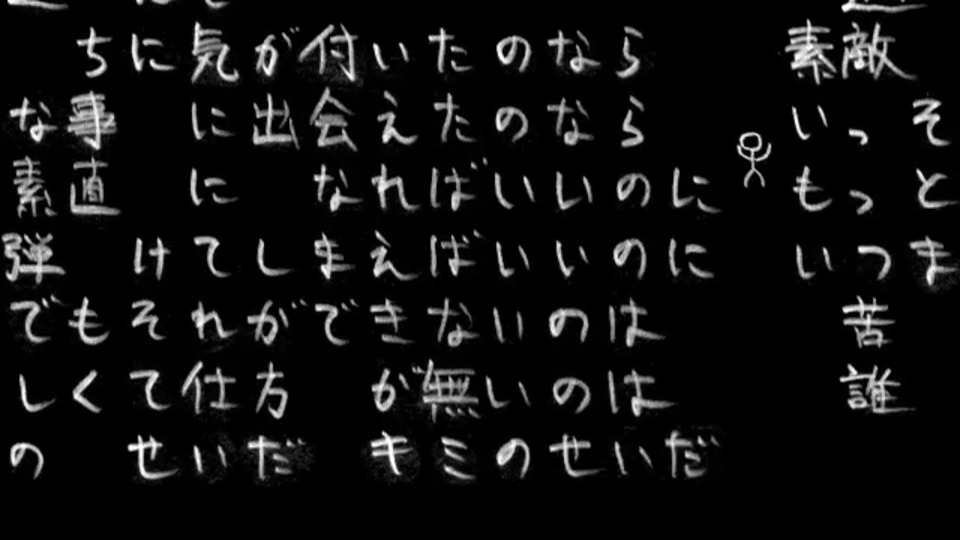 ちに気が付いたのなら 素敵
な事 に出会えたのなら いっそ
素直 に なればいいのに もっと
弾 けてしまえばいいのに いつま
でもそれができないのは 苦
しくて仕方 が無いのは 誰
の せいだ キミのせいだ